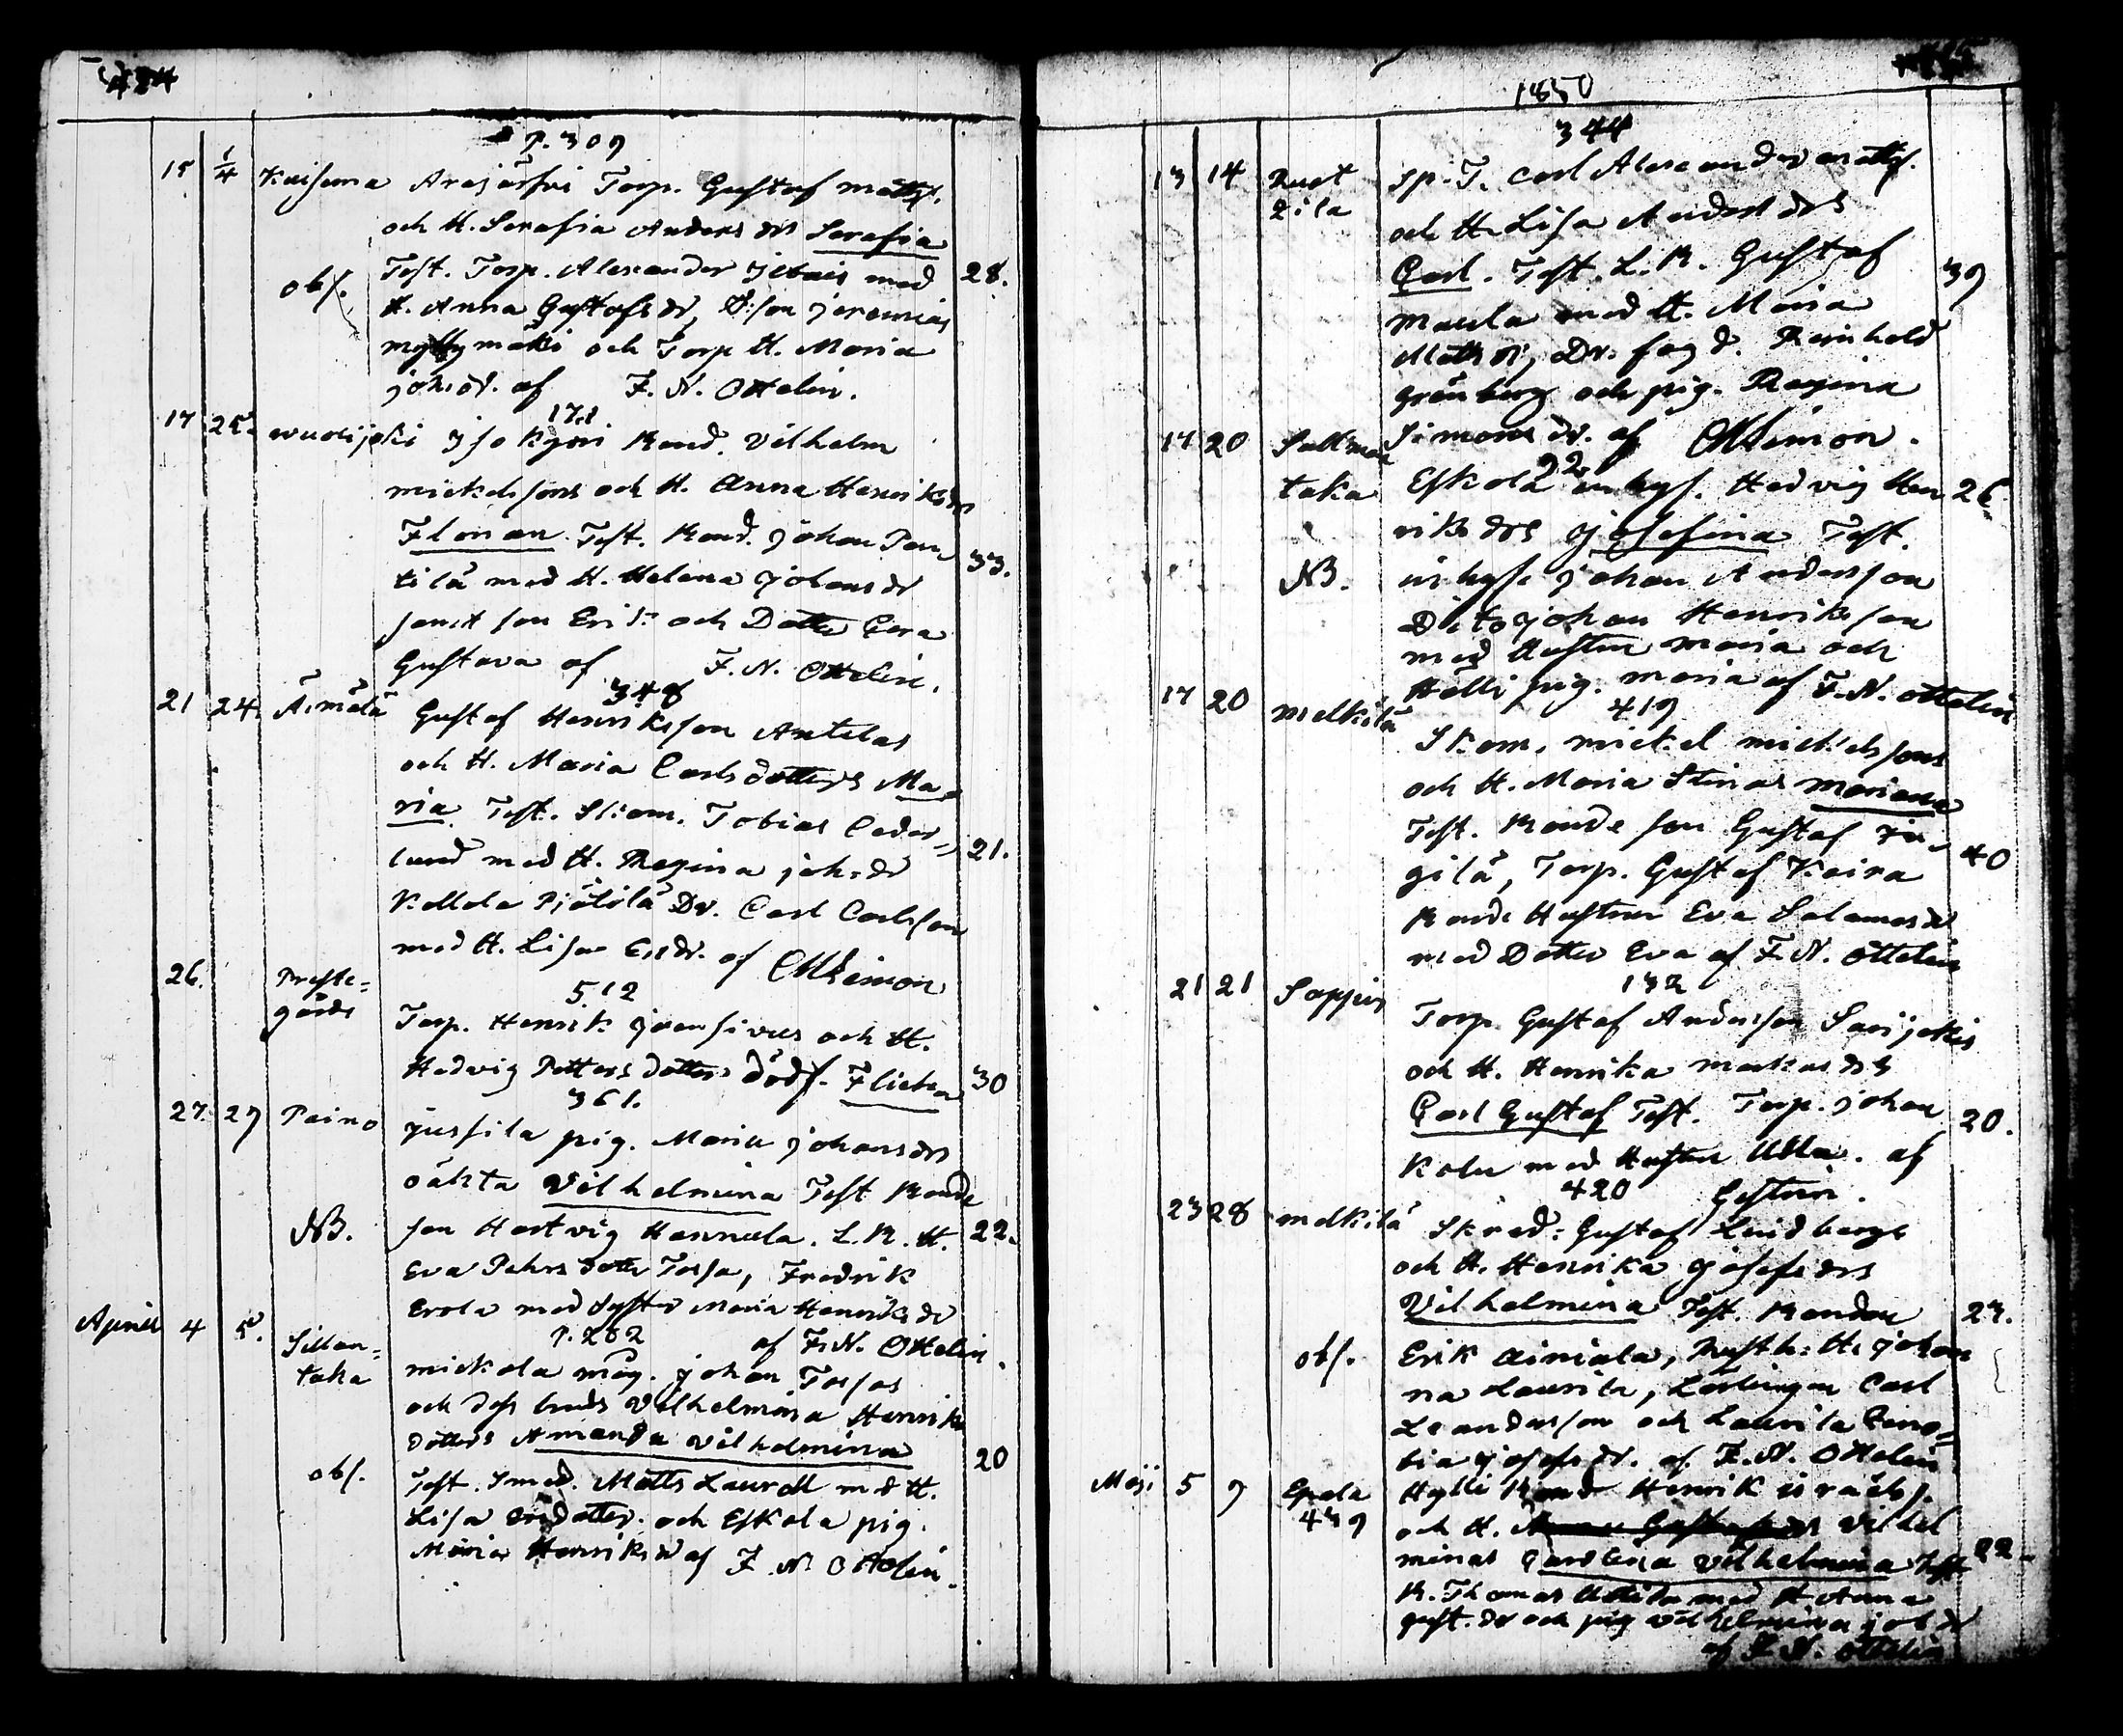 p. 309
15 1/4 Kaisma Arajärfvi Torp. Gustaf Matts.
och H. Serafia Anders drs Serafia
obs. Test. Torp. Alexander med 28.
H. Anna Gustafs dr, Jeremias
och Torp H. Maria
joh. dr. af F. N. Ottelin.
171
17 25. Wuorijoki Isokyrri Bond. Vilhelm
Mickelsons och H. Anna Henriks drs
Florian Test. Bond. Johan Pen
tilä med H. Helena Johans dr 33.
samt son Erik och Dotter Eva
Gustava af F. N. Ottelin.
348
21 24. Äimälä Gustaf Henriksson Antelas
och H. Maria Carls dotters Ma
ria Test. Skom. Tobias Ceder
lund med H. Regina joh. dr 21.
Kallela Pjölilä Dr. Carl Carlsson
med H. Lisa Er. dr. af
26. Preste=
gårds
512
Torp. Henrik och H.
Hedvig Petters dotters dödf. Flicka 30
361.
27. 29 Paino Jussila pig. Maria Johans drs
oäkta Vilhelmina Test Bonde
NB. son Hartvig Hannula. L. B. H. 22.
Eva Pehrs dotter Torsa, Fredrik
Erola med Syster Maria Henriks dr
p. 282 af F. N. Ottelin.
April 4 5. Sillan=
taka
Mickola måg. Johan Torsas
och dess hust. Vilhelmina Henriks
dotters Amanda Vilhelmina 20
obs. Test. Smed. Matts Laurell med H.
Lisa Er. dotter. och Eskola pig.
Maria Henriks dr af F. N. Ottelin.
1850
344
13 14 Rust
zila
Sp. T. Carl Alexander Matts.
och H. Lisa Anders drs
Carl. Test. L. B. Gustaf 39
Maula med H. Maria
Matts dr, Dr. fogd. Reinhold
Grönberg och pig. Regina
Simons dr. af
92
17 20 Sallman
taka
Eskola inhys. Hedvig Hen 26.
riks drs Josefina Test.
NB. inhyse Johan Andersson
Dito Johan Henriksson
med Hustru Maria och
Hälli pig. Maria af F. N. Ottelin
419
17 20 Melkilä Skom. Mickel Mickelssons
och H. Maria Stinas Mariana
Test. Bonde son Gustaf 40
gilä, Torp. Gustaf Kaira
Bonde Hustrun Eva Salomos dr
med Dotter Eva af F. N. Ottelin
132
21 21 Sappis Torp. Gustaf Andersson Sarijokis
och H. Henrika Markus drs
Carl Gustaf Test. Torp. Johan 20.
Kolu med Hustru Ulla. af
420
23 28 Melkilä Skred: Gustaf Lindbergs
och H. Henrika Josefs drs
Vilhelmina Test. Bonden 27.
obs. Erik Äimälä, Rusth. H. Johan
na Laurila, Lärlingen Carl
Leandersson och Laurila Zeno
bia Josefs dr. af F. N. Ottelin
Maji 5 9 Epala
439
Hylli Bond Henrik Israels s.
och H. Anna Gustafs drs Vilhel
minas Carolina Vilhelmina Test 22.
B. Thomas Uotila med H. Anna
Gust. dr och pig Vilhelmina joh dr
af F. N. Ottelin